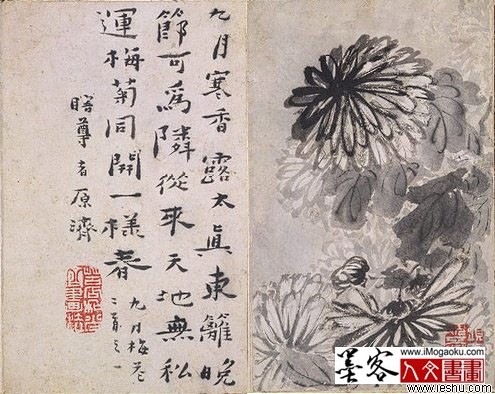 九月寒香露太真東籬晚
節可爲隣從來天地無私
運梅菊同開一樣春
九月梅花
二首之一
瞎尊者原濟
www.iMogaoku.com
墨客
www.ieshu.com